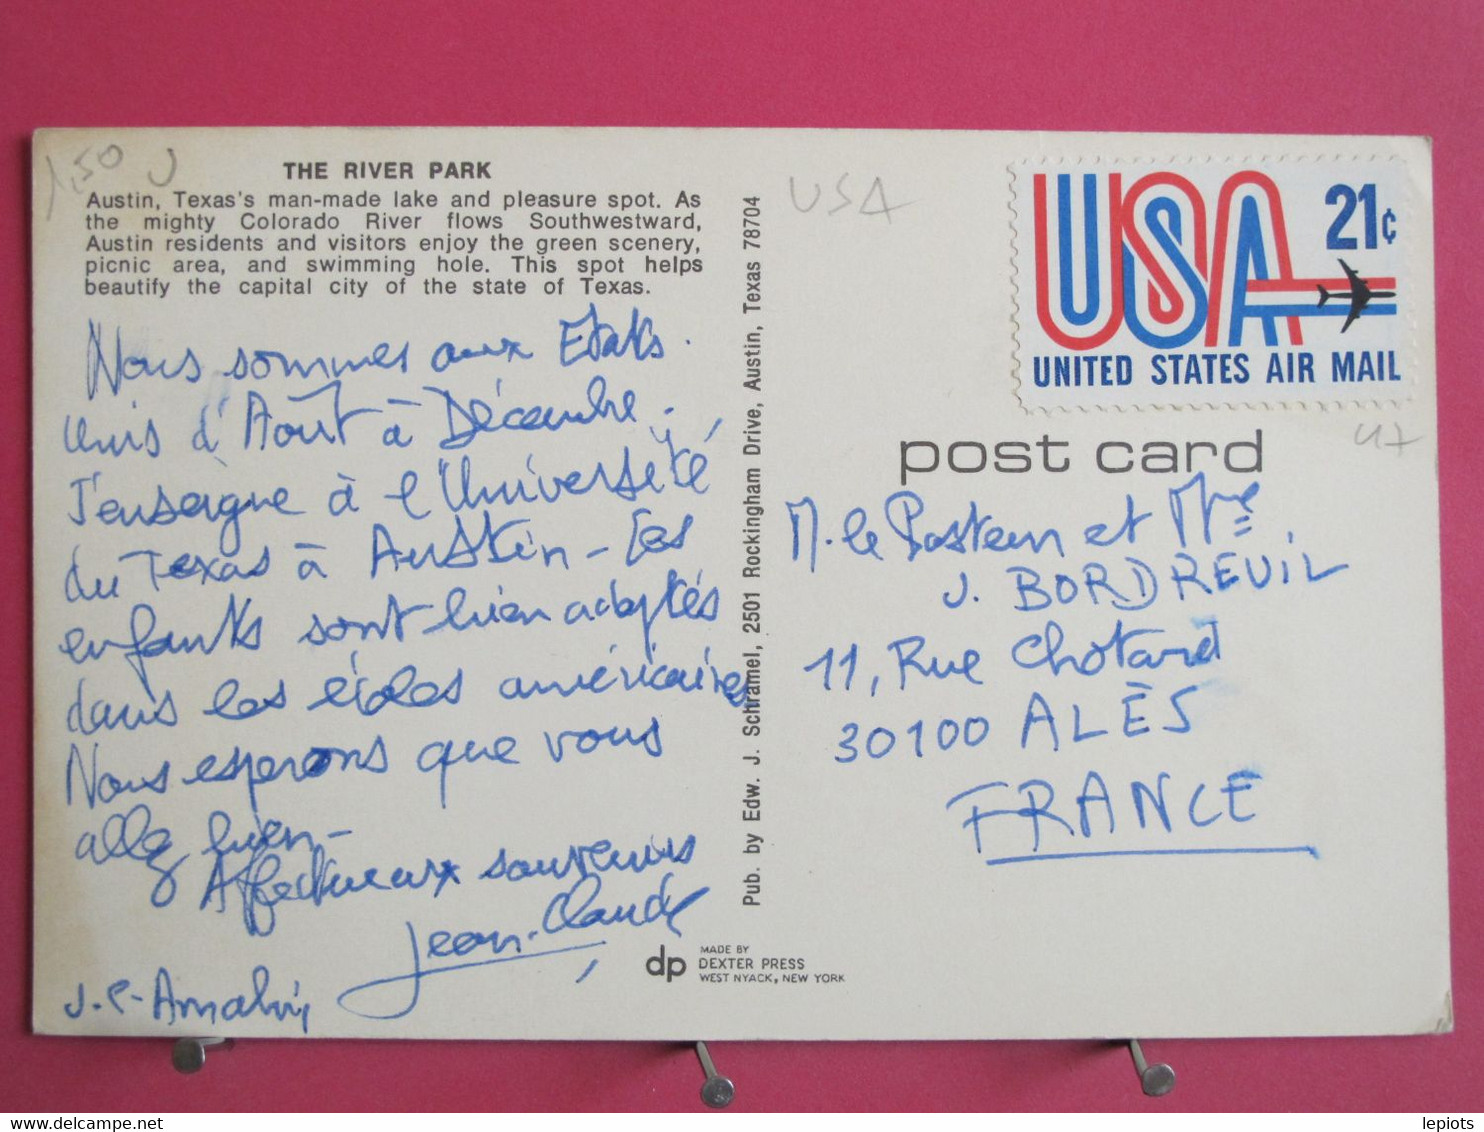 1,50
THE RIVER PARK
Austin, Texas's man-made lake and pleasure spot. As
the mighty Colorado River flows Southwestward,
Austin residents and visitors enjoy the green scenery,
picnic area, and swimming hole. This spot helps
beautify the capital city of the state of Texas.
Nous sommes aux Etats.
Unis d'Août à Décembre.
J'enseigne à l'Université
du Texas à Austin - Les
enfants sont bien adaptés
dans les écoles américaines
Nous esperons que vous
allez bien -
Affectueux souvenirs
Jean-Claude
J.C-Amalvi,
Pub. by Edw. J. Schramel, 2501 Rockingham Drive, Austin, Texas 78704
dp
MADE BY
DEXTER PRESS
WEST NYACK, NEW YORK
USA
USA 21¢
UNITED STATES AIR MAIL
post card
M. le Pasteur et Mme
J. BORDREUIL
11, Rue Chotard
30100 ALÈS
FRANCE
delcampe.net
lepiots